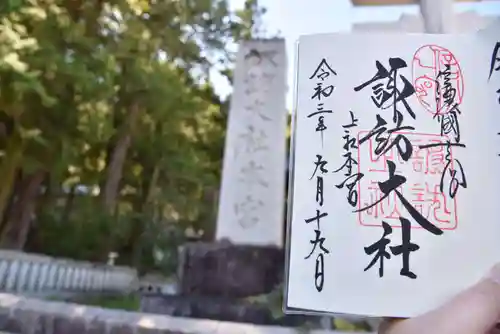 信濃國一之宮
諏訪大社
上社本宮
令和三年九月十九日
諏訪大社本宮